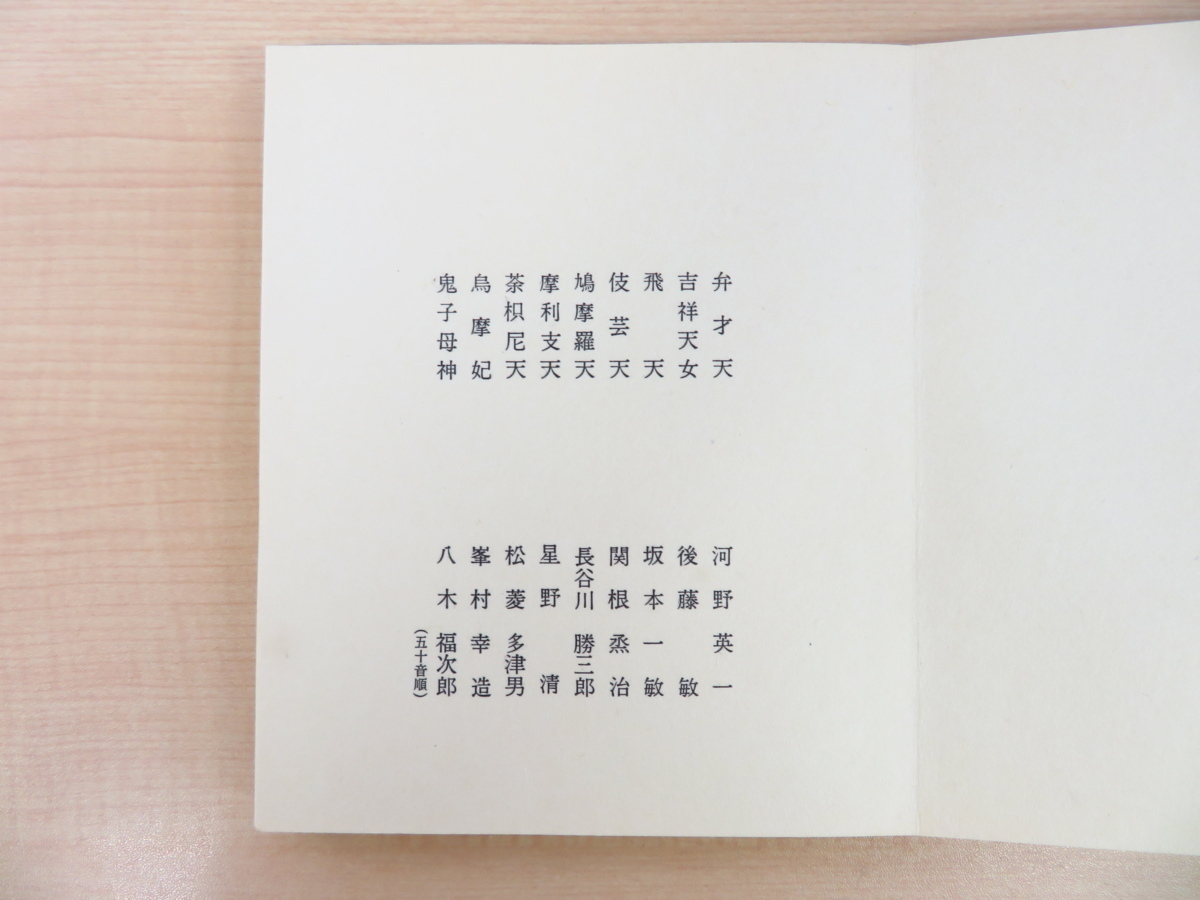 弁才天
吉祥天女
飛天
伎芸天
鳩摩羅天
摩利支天
荼枳尼天
烏摩妃
鬼子母神
河野英一
後藤敏
坂本一敏
関根烝治
長谷川勝三郎
星野清
松菱多津男
峯村幸造
八木福次郎
(五十音順)